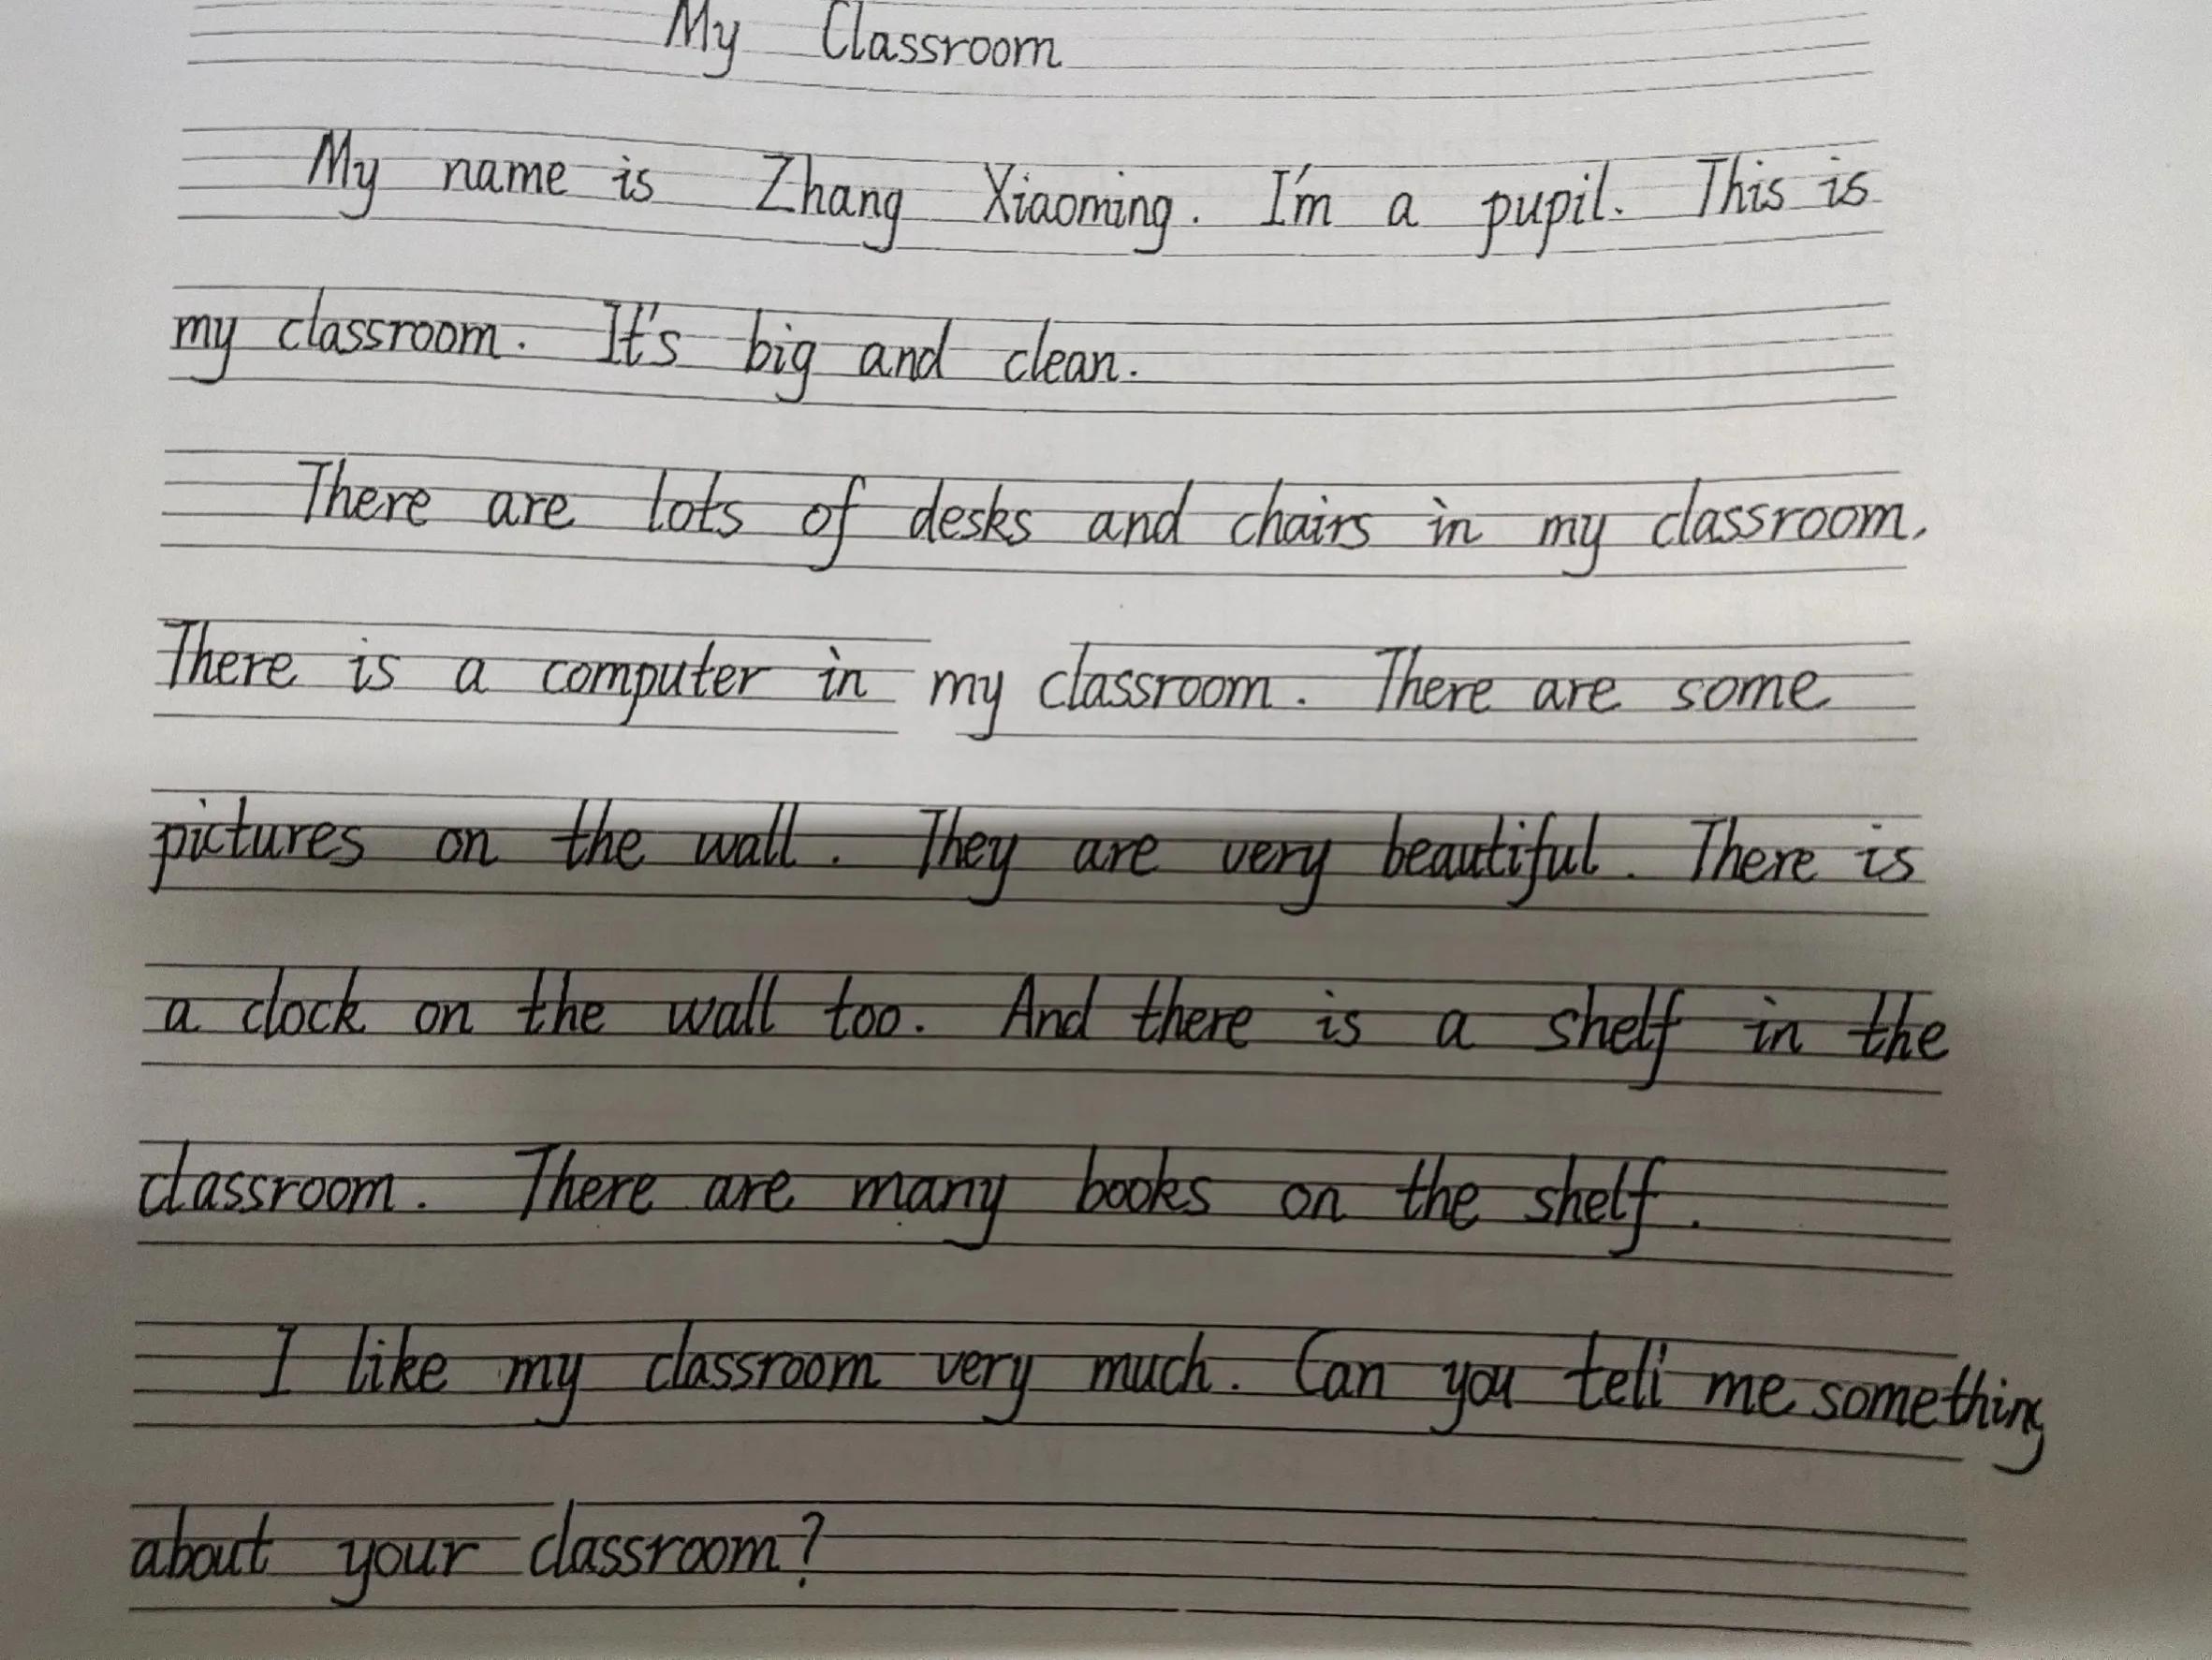 My Classroom
My name is Zhang Xiaoming. I'm a pupil. This is
my classroom. It's big and clean.
There are lots of desks and chairs in my classroom.
There is a computer in my classroom. There are some
pictures on the wall. They are very beautiful. There is
a clock on the wall too. And there is a shelf in the
classroom. There are many books on the shelf.
I like my classroom very much. Can you tell me something
about your classroom?